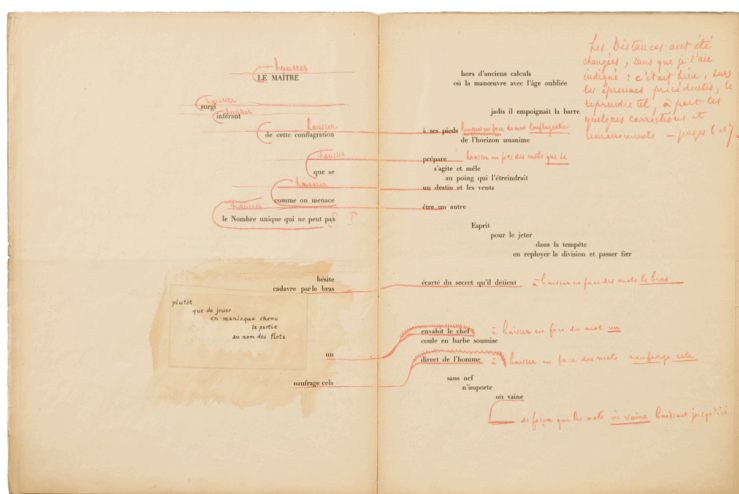 hausser
LE MAÎTRE
hausser
surgi
hausser
inférant
hausser
de cette conflagration
hausser
que se
hausser
comme on menace
hausser
le Nombre unique qui ne peut pas
hésite
cadavre par le bras
plutôt
que de jouer
en maniaque chenu
la partie
au nom des flots
un
naufrage cela
hors d'anciens calculs
où la manœuvre avec l'âge oubliée
jadis il empoignait la barre
à ses pieds baisser en face du mot Conflagration
de l'horizon unanime
prépare baisser en face des mots que se
s'agite et mêle
au poing qui l'étreindrait
un destin et les vents
être un autre
Esprit
pour le jeter
dans la tempête
en reployer la division et passer fier
écarté du secret qu'il détient à baisser en face des mots le bras
envahit le chef à baisser en face du mot un
coule en barbe soumise
direct de l'homme à baisser en face des mots naufrage cela
sans nef
n'importe
où vaine
de façon que les mots où vaine baissent jusqu'ici
Les Distances ont été
changées, sans que je l'aie
indiqué : c'était bien, sur
les épreuves précédentes, le
reprendre tel, à part les
quelques corrections et
— pages 6 et 7.